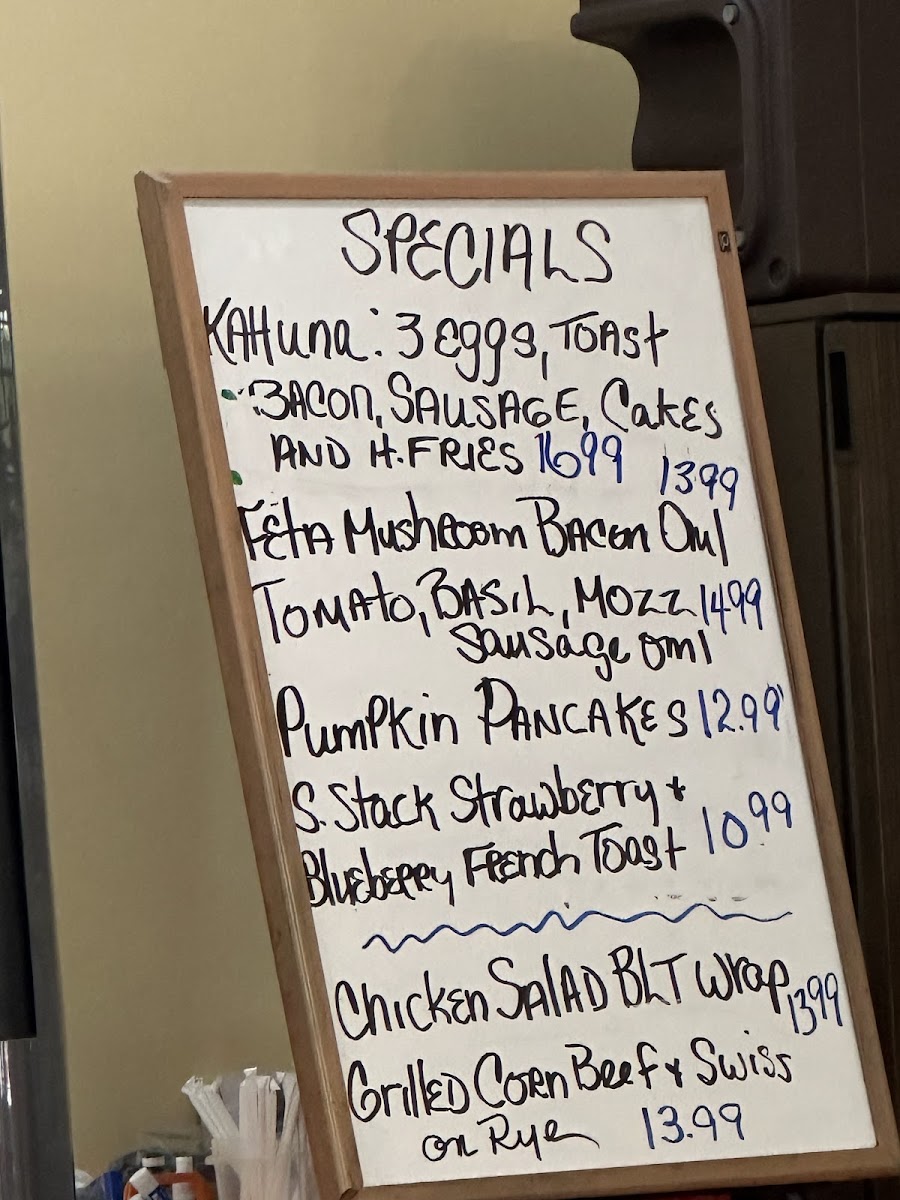 SPECIALS
KAHuna: 3 Eggs, TOAST
BACON, SAUSAGE, CakES
AND H. FRIES 16.99
13.99
FEtA MushRoom BACon Oml
TOMAto, BASIL, MOZZ 14.99
Sausage oml
PumPkin PANCAKES 12.99
S. Stack Strawberry +
BluEbERRy FREnch Toast 10.99
Chicken SalAD BLT Wrap 13.99
GrillED Corn Beef & Swiss
on Rye 13.99